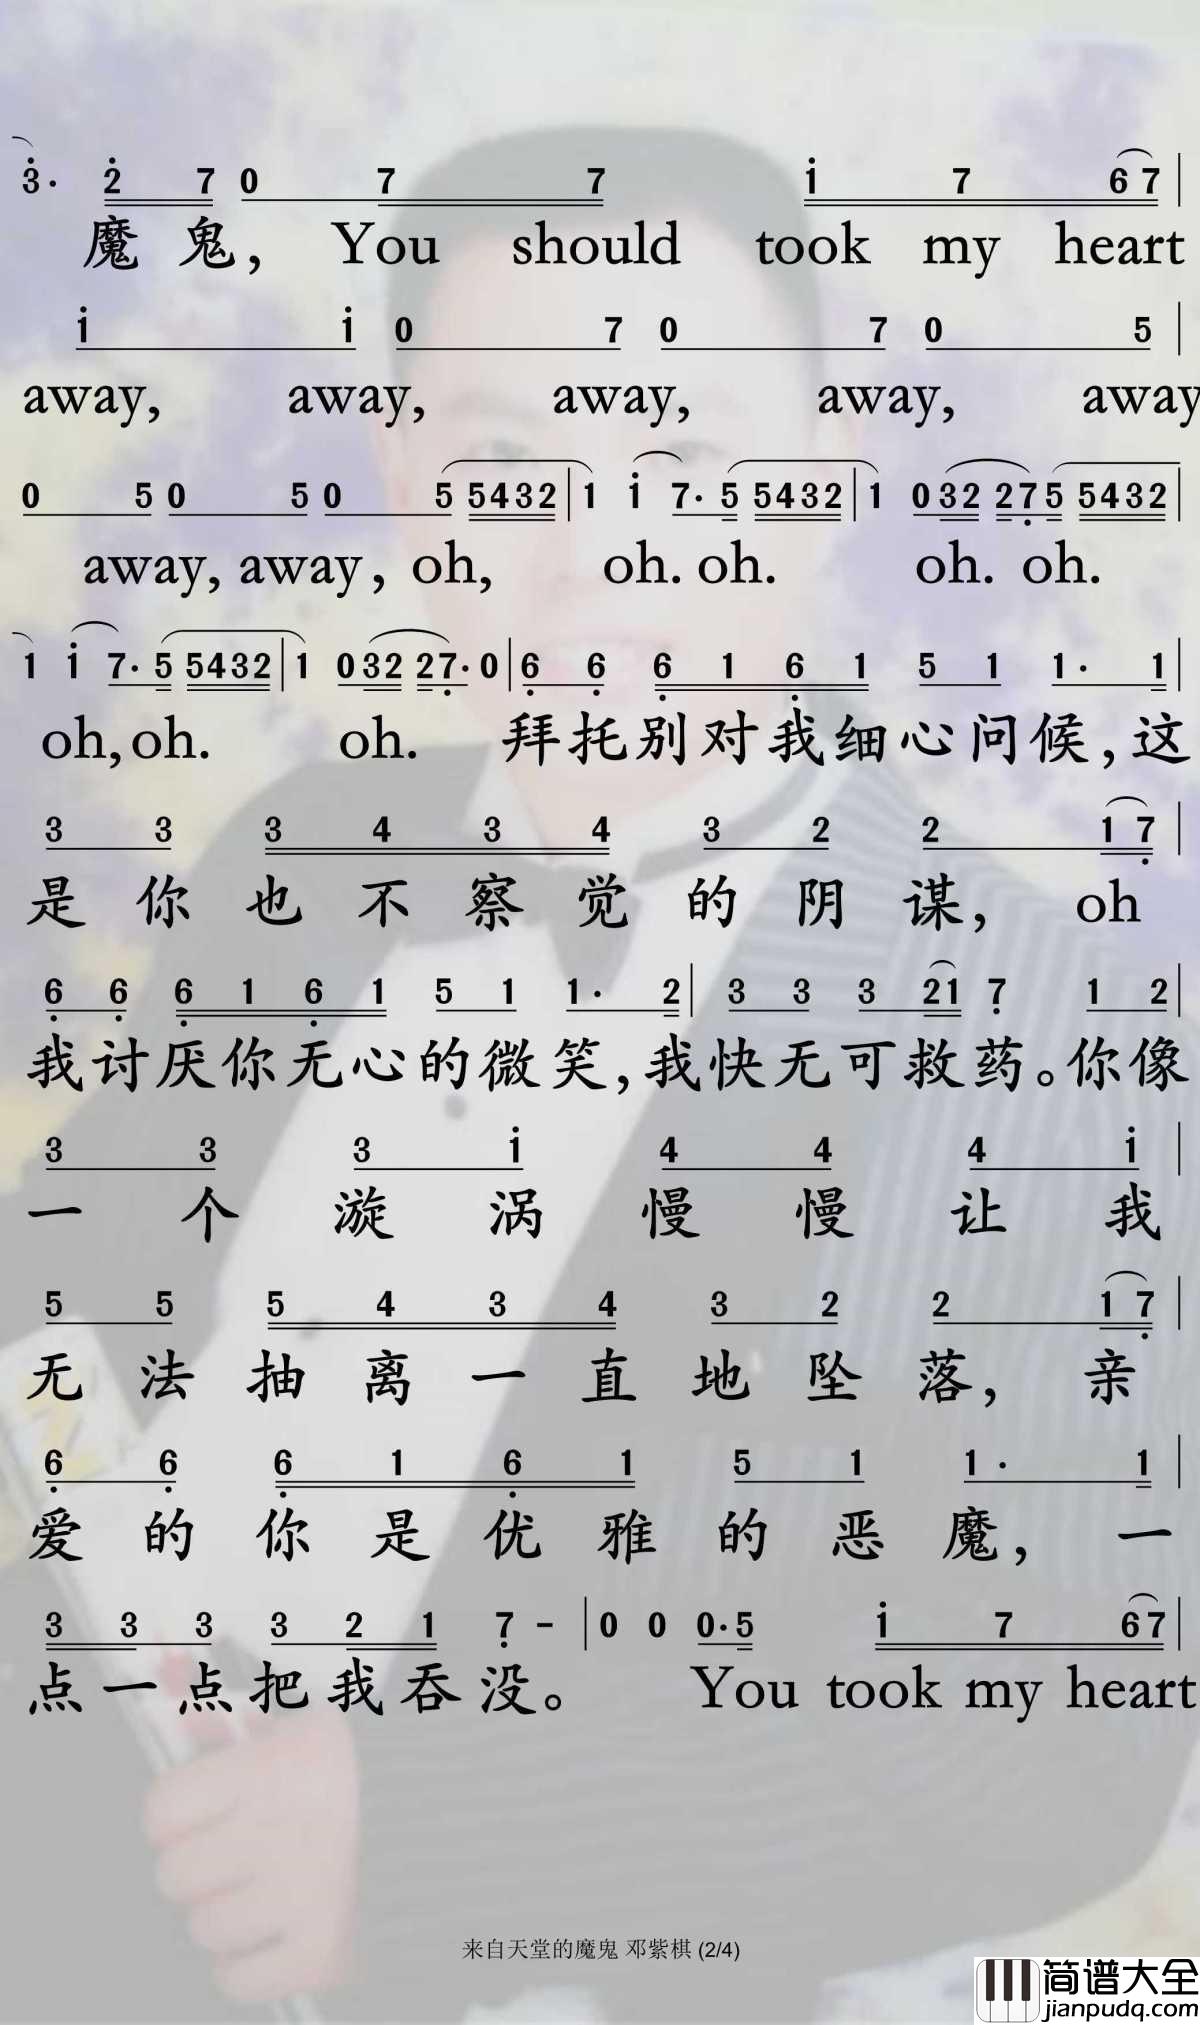 3· 2 7 0 7 7 1 7 6 7
魔鬼, You should took my heart
1 1 0 7 0 7 0 5
away, away, away, away, away
0 5 0 5 0 5 5432 1 1 7· 5 5432 1 0 32 27 5 5432
away, away, oh, oh. oh. oh. oh.
1 1 7· 5 5432 1 0 32 27· 0 6 6 6 1 6 1 5 1 1· 1
oh, oh. oh. 拜托别对我细心问候,这
3 3 3 4 3 4 3 2 2 1 7
是你也不察觉的阴谋, oh
6 6 6 1 6 1 5 1 1· 2 3 3 3 21 7 1 2
我讨厌你无心的微笑,我快无可救药。你像
3 3 3 1 4 4 4 1
一个漩涡慢慢让我
5 5 5 4 3 4 3 2 2 1 7
无法抽离一直地坠落,亲
6 6 6 1 6 1 5 1 1· 1
爱的你是优雅的恶魔,一
3 3 3 3 2 1 7 - 0 0 0·5 1 7 67
点一点把我吞没。 You took my heart
来自天堂的魔鬼 邓紫棋 (2/4)
简谱大全
jianpudq.com